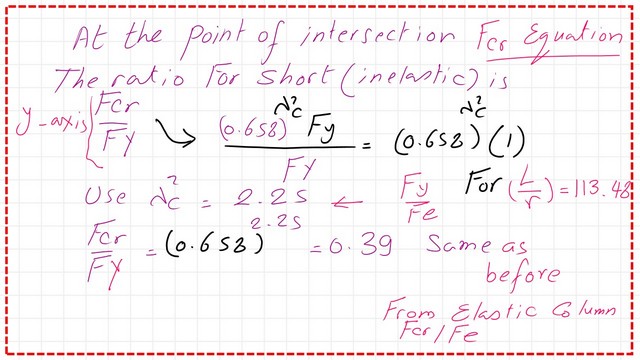 At the point of intersection Fcr Equation
The ratio For short (inelastic) is
y-axis Fcr/Fy → (0.658)^λc² Fy / Fy = (0.658)^λc² (1)
Use λc² = 2.25 ← Fy/Fe For (L/r) = 113.43
Fcr/Fy = (0.658)^2.25 = 0.39 Same as
before
From Elastic Column
Fcr/Fe